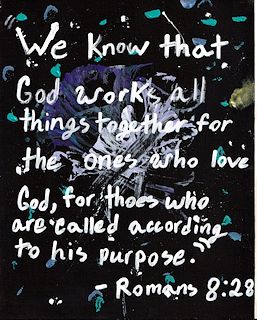 We know that
God works all
things together for
the ones who love
God, for thoes who
are called according
to his purpose."
- Romans 8:28